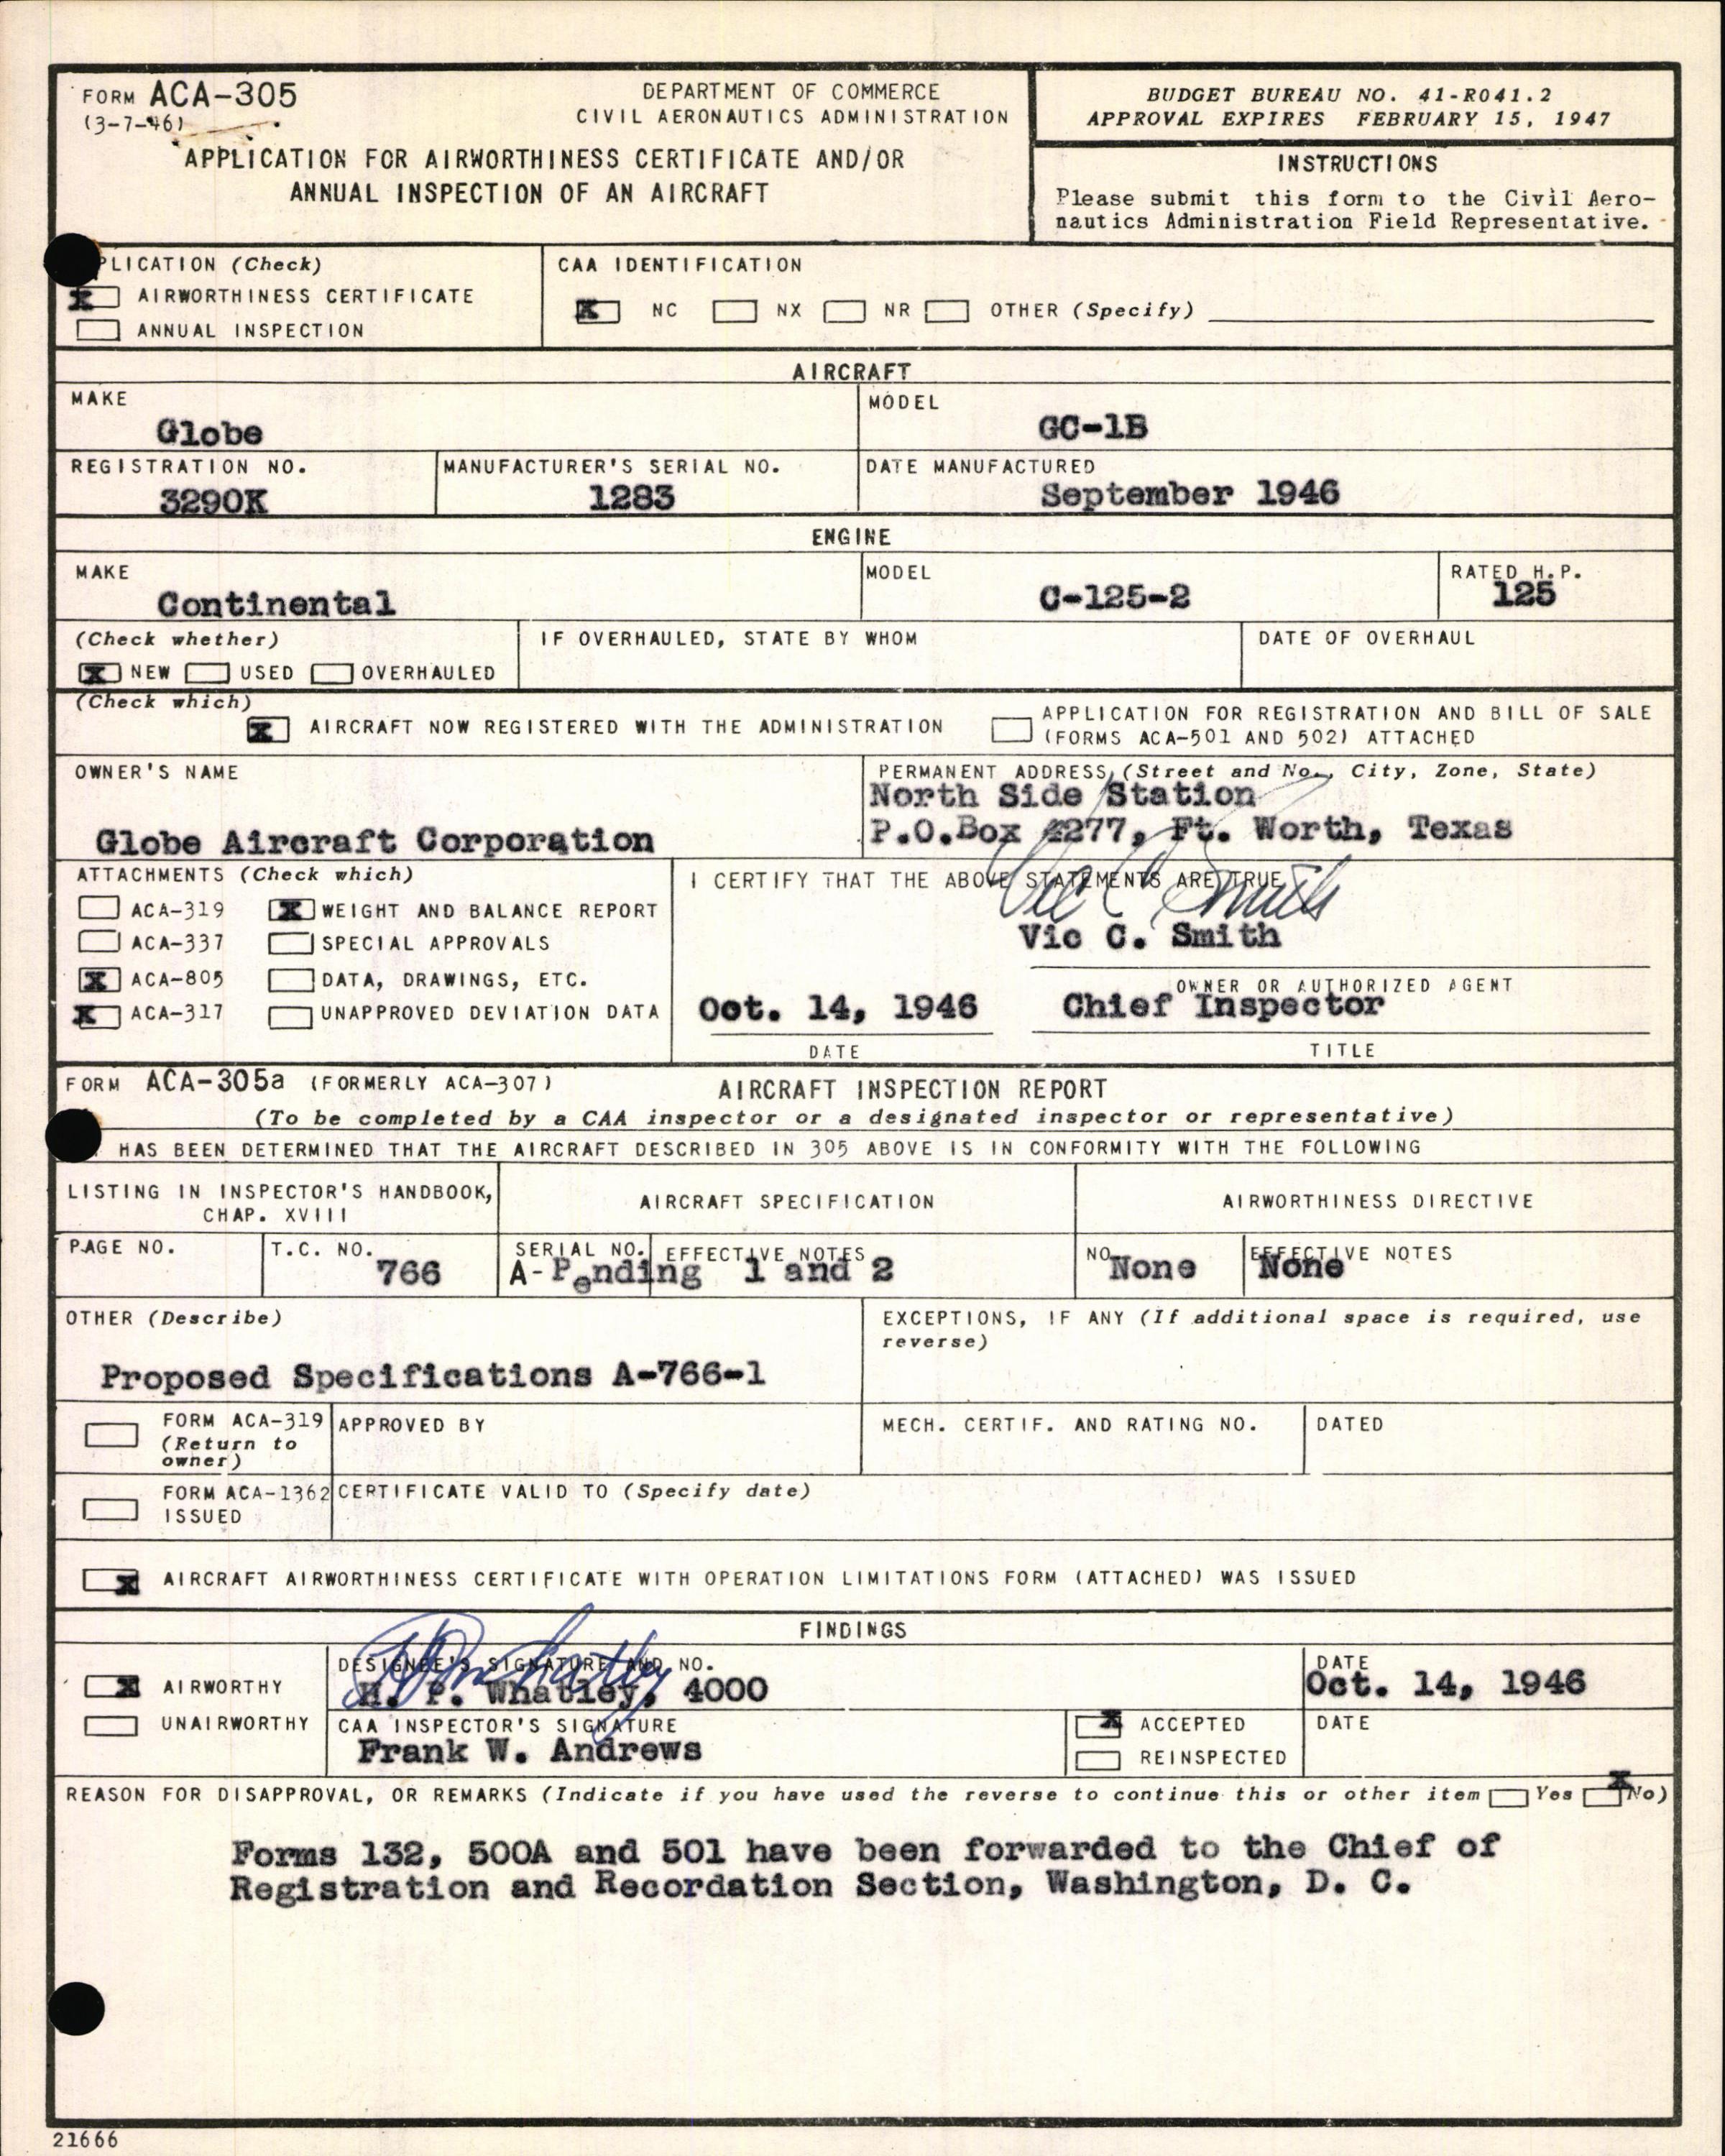 FORM ACA-305
(3-7-46)
DEPARTMENT OF COMMERCE
CIVIL AERONAUTICS ADMINISTRATION
APPLICATION FOR AIRWORTHINESS CERTIFICATE AND/OR
ANNUAL INSPECTION OF AN AIRCRAFT
BUDGET BUREAU NO. 41-R041.2
APPROVAL EXPIRES FEBRUARY 15, 1947
INSTRUCTIONS
Please submit this form to the Civil Aero-
nautics Administration Field Representative.
PLICATION (Check)
X AIRWORTHINESS CERTIFICATE
ANNUAL INSPECTION
CAA IDENTIFICATION
X NC NX NR OTHER (Specify)
AIRCRAFT
MAKE
Globe
MODEL
GC-1B
REGISTRATION NO.
3290K
MANUFACTURER'S SERIAL NO.
1283
DATE MANUFACTURED
September 1946
ENGINE
MAKE
Continental
MODEL
C-125-2
RATED H.P.
125
(Check whether)
X NEW USED OVERHAULED
IF OVERHAULED, STATE BY WHOM
DATE OF OVERHAUL
(Check which)
X AIRCRAFT NOW REGISTERED WITH THE ADMINISTRATION
APPLICATION FOR REGISTRATION AND BILL OF SALE
(FORMS ACA-501 AND 502) ATTACHED
OWNER'S NAME
Globe Aircraft Corporation
PERMANENT ADDRESS (Street and No., City, Zone, State)
North Side Station
P.O.Box 4277, Ft. Worth, Texas
ATTACHMENTS (Check which)
ACA-319 X WEIGHT AND BALANCE REPORT
ACA-337 SPECIAL APPROVALS
X ACA-805 DATA, DRAWINGS, ETC.
X ACA-317 UNAPPROVED DEVIATION DATA
I CERTIFY THAT THE ABOVE STATEMENTS ARE TRUE
Vic C Smith
Vic C. Smith
OWNER OR AUTHORIZED AGENT
Oct. 14, 1946 Chief Inspector
DATE TITLE
FORM ACA-305a (FORMERLY ACA-307) AIRCRAFT INSPECTION REPORT
(To be completed by a CAA inspector or a designated inspector or representative)
HAS BEEN DETERMINED THAT THE AIRCRAFT DESCRIBED IN 305 ABOVE IS IN CONFORMITY WITH THE FOLLOWING
LISTING IN INSPECTOR'S HANDBOOK,
CHAP. XVIII
AIRCRAFT SPECIFICATION
AIRWORTHINESS DIRECTIVE
PAGE NO.
T.C. NO.
766
SERIAL NO. EFFECTIVE NOTES
A-Pending 1 and 2
NO. EFFECTIVE NOTES
None None
OTHER (Describe)
Proposed Specifications A-766-1
EXCEPTIONS, IF ANY (If additional space is required, use
reverse)
FORM ACA-319
(Return to
owner)
APPROVED BY
MECH. CERTIF. AND RATING NO.
DATED
FORM ACA-1362
ISSUED
CERTIFICATE VALID TO (Specify date)
X AIRCRAFT AIRWORTHINESS CERTIFICATE WITH OPERATION LIMITATIONS FORM (ATTACHED) WAS ISSUED
FINDINGS
X AIRWORTHY
UNAIRWORTHY
DESIGNEE'S SIGNATURE AND NO.
H P Whatley
H. P. Whatley, 4000
DATE
Oct. 14, 1946
CAA INSPECTOR'S SIGNATURE
Frank W. Andrews
X ACCEPTED
REINSPECTED
DATE
REASON FOR DISAPPROVAL, OR REMARKS (Indicate if you have used the reverse to continue this or other item Yes X No)
Forms 132, 500A and 501 have been forwarded to the Chief of
Registration and Recordation Section, Washington, D. C.
21666